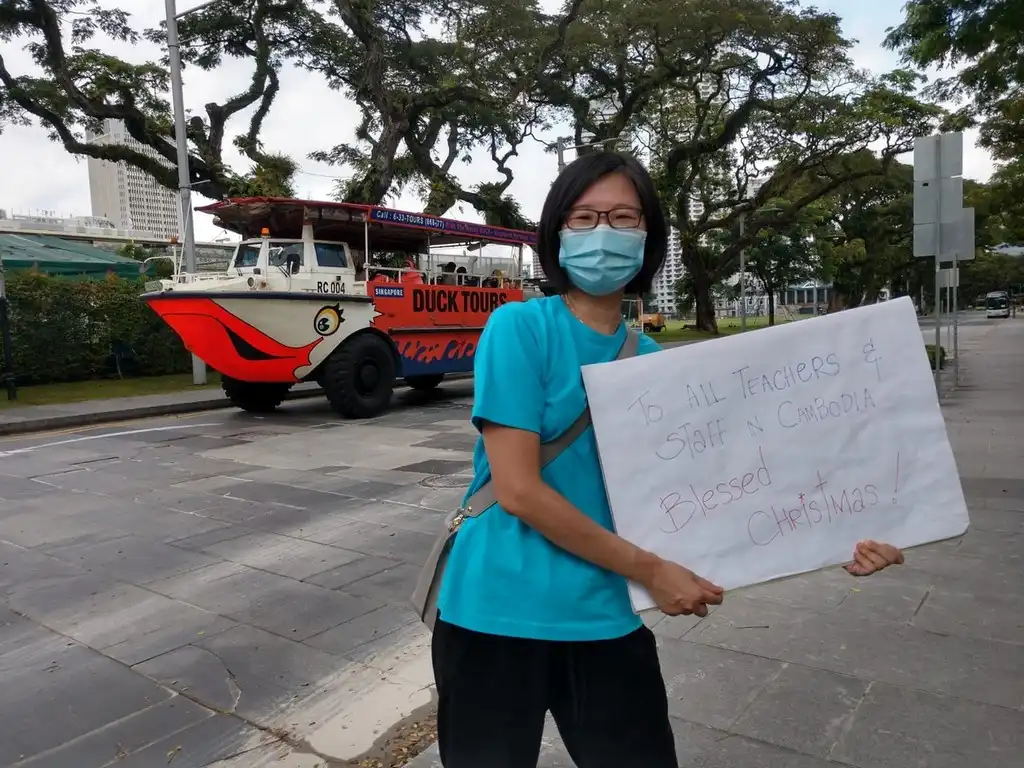 Call : 6-33-TOURS
RC 004
SINGAPORE
DUCK TOURS
TO ALL TEACHERS &
STAFF N CAMBODIA
Blessed
CHRISTMAS !